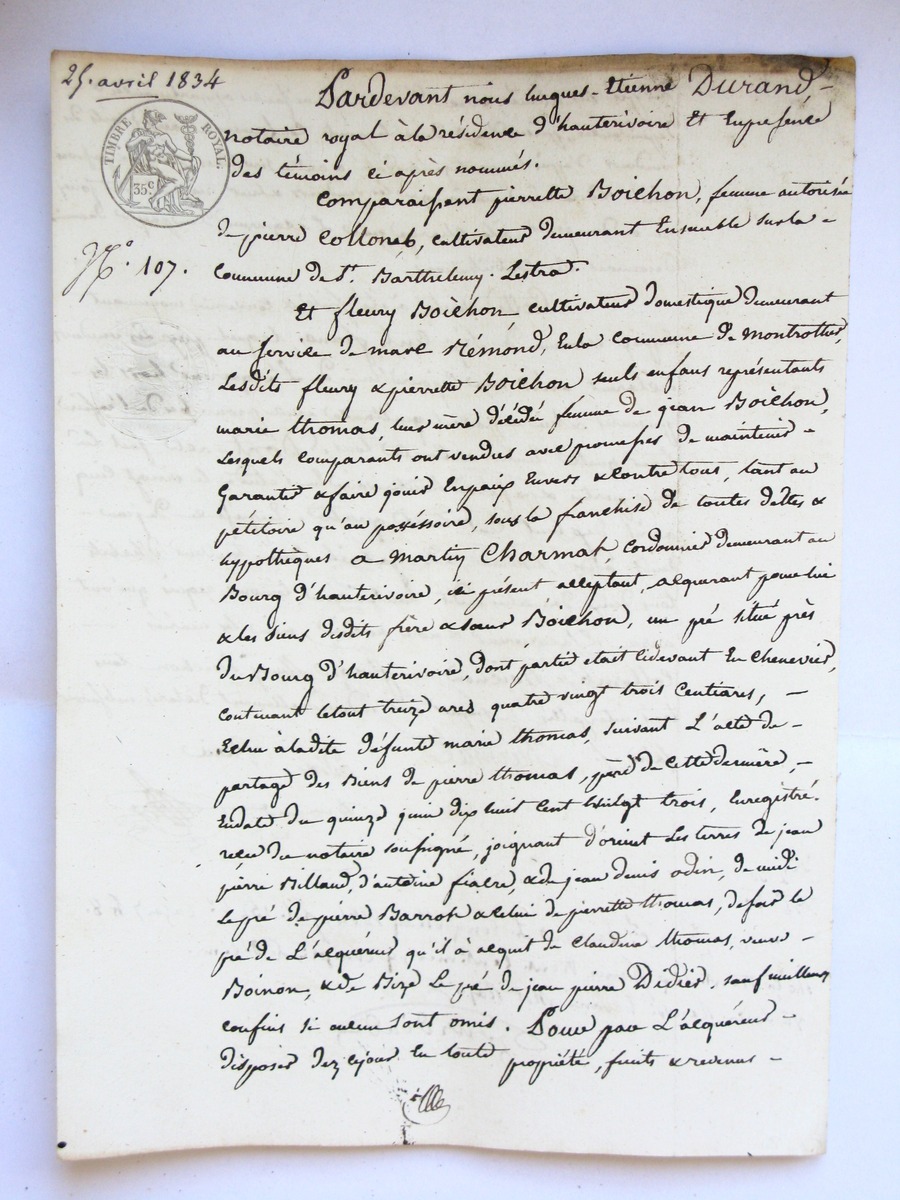 25. avril 1834
TIMBRE ROYAL.
35.c
N.o 107.
Pardevant nous hugues-Etienne Durand-
notaire royal à la résidence d'hauterivoire Et Enpresence
des témoins ci après nommés.
Comparaissent pierrette Boichon, femme autorisée
de pierre Collonat, cultivateur demeurant Ensemble sur la -
Commune de St. Barthelemy-Lestra.
Et fleury Boichon cultivateur domestique demeurant
au service de marc Rémond, Enla Commune de montrottier,
Lesdits fleury & pierrette Boichon seuls enfans représentants
marie thomas, leur mère décédée femme de jean Boichon,
Lesquels comparants ont vendus avec promesses de maintenir -
Garantir & faire jouir Enpaix Envers & Contre tous, tant au
pétitoire qu'au posséssoire, sous la franchise de toutes dettes &
hypothèques a martin Charmat, cordonnier demeurant au
Bourg d'hauterivoire, ici présent acceptant, acquerant pour lui
& les siens desdits frère & soeur Boichon, un pré situé près
du Bourg d'hauterivoire, dont partie etait cidevant En Chenevier,
Contenant letout treize ares quatre vingt trois Centiares, -
Echu àladite défunte marie thomas, suivant L'acte de -
partage des Biens de pierre thomas, père de cette dernière, -
Endate du quinze juin dix huit cent vingt trois, Enregistré.
reçu du notaire soussigné, joignant d'orient Les terres de jean
pierre Billaud, d'antoine fialre, & de jean denis odin, de midi
Le pré de pierre Barrot & celui de pierrette thomas, de soir le
pré de L'acquéreur qu'il à acquit de Claudine thomas, veuve -
Boinon, & de Bize Le pré de jean pierre Didier, sauf meilleurs
confins si aucuns sont omis. Pour par L'acquéreur -
disposer dez cejour En toute propriété, fruits & revenus -